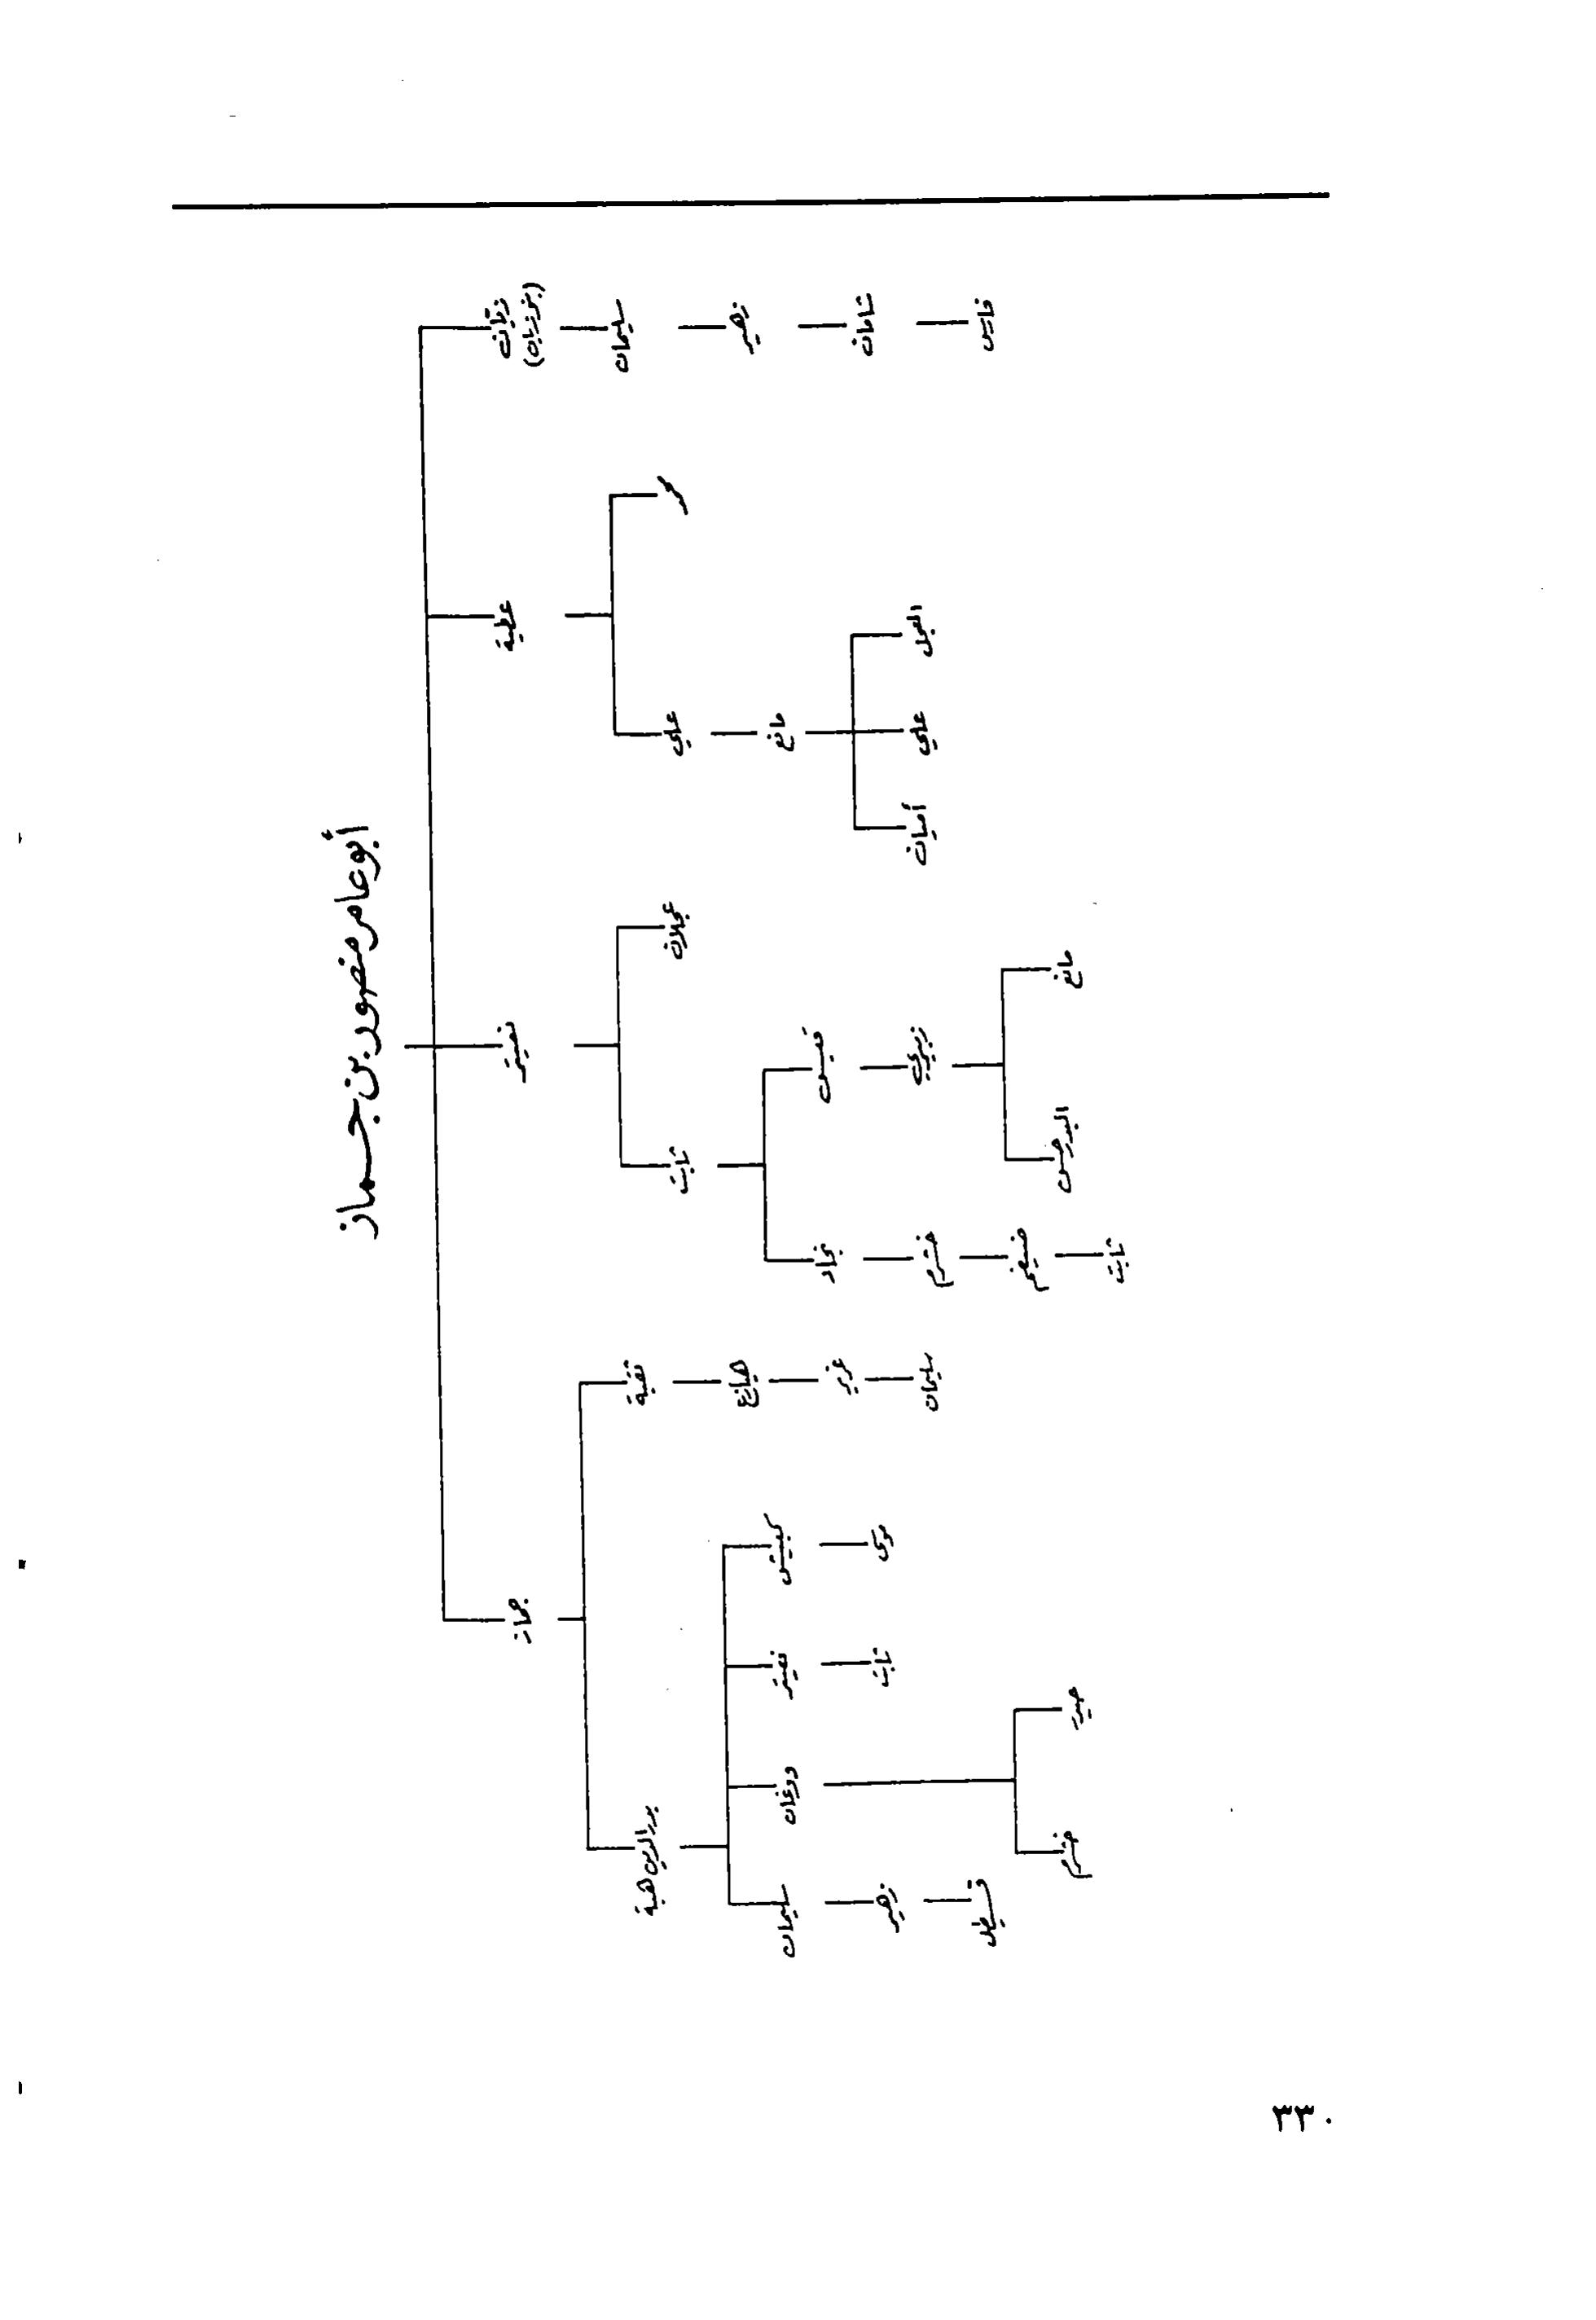 أبو عامر منصور بن جماز
زيان
(بنو زيان)
سليمان
زهير
شامان
فارس
عطية
علي
مانع
علي
أميان
نعير
عجلان
ثابت
قسيس
زبيري
مانع
البرجس
نجاد
خشرم
ضيغم
ثابت
جماز
نقبة
هانع
عزيز
سليمان
بدر الدين هبة
كبيش
نعير
ثابت
درغان
خشرم
سليمان
زهير
٣٣٠